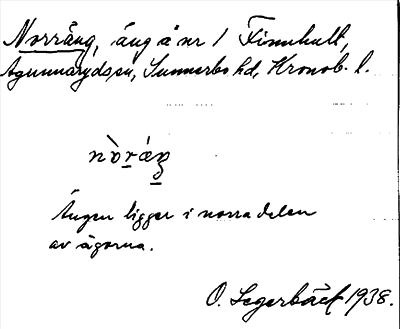 Norräng, äng å nr 1 Finnhult,
Agunnaryds sn, Sunnerbo hd, Kronob. l.
nòrǽŋ
Ängen ligger i norra delen
av ägorna.
O. Segerbäck 1938.